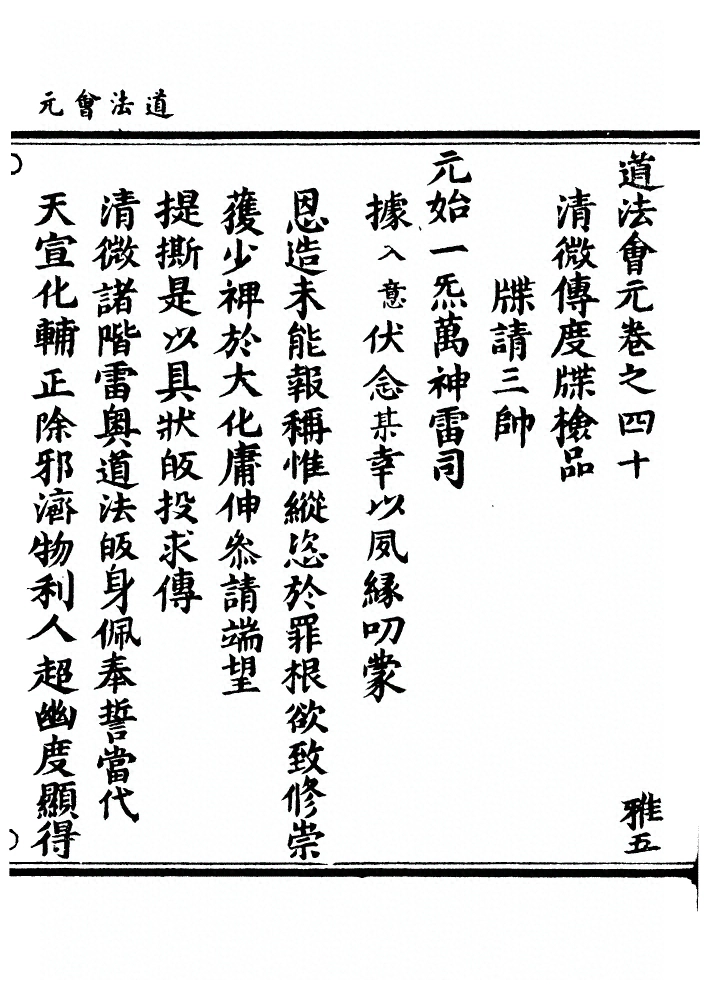 道法會元
道法會元卷之四十 雅五
清微傳度牒檢品
牒請三帥
元始一炁萬神雷司
據入意伏念某幸以夙緣叨蒙
恩造未能報稱惟縱恣於罪根欲致修崇
獲少裨於大化庸伸叅請端望
提撕是以具狀皈投求傳
清微諸階雷奥道法皈身佩奉誓當代
天宣化輔正除邪濟物利人超幽度顯得